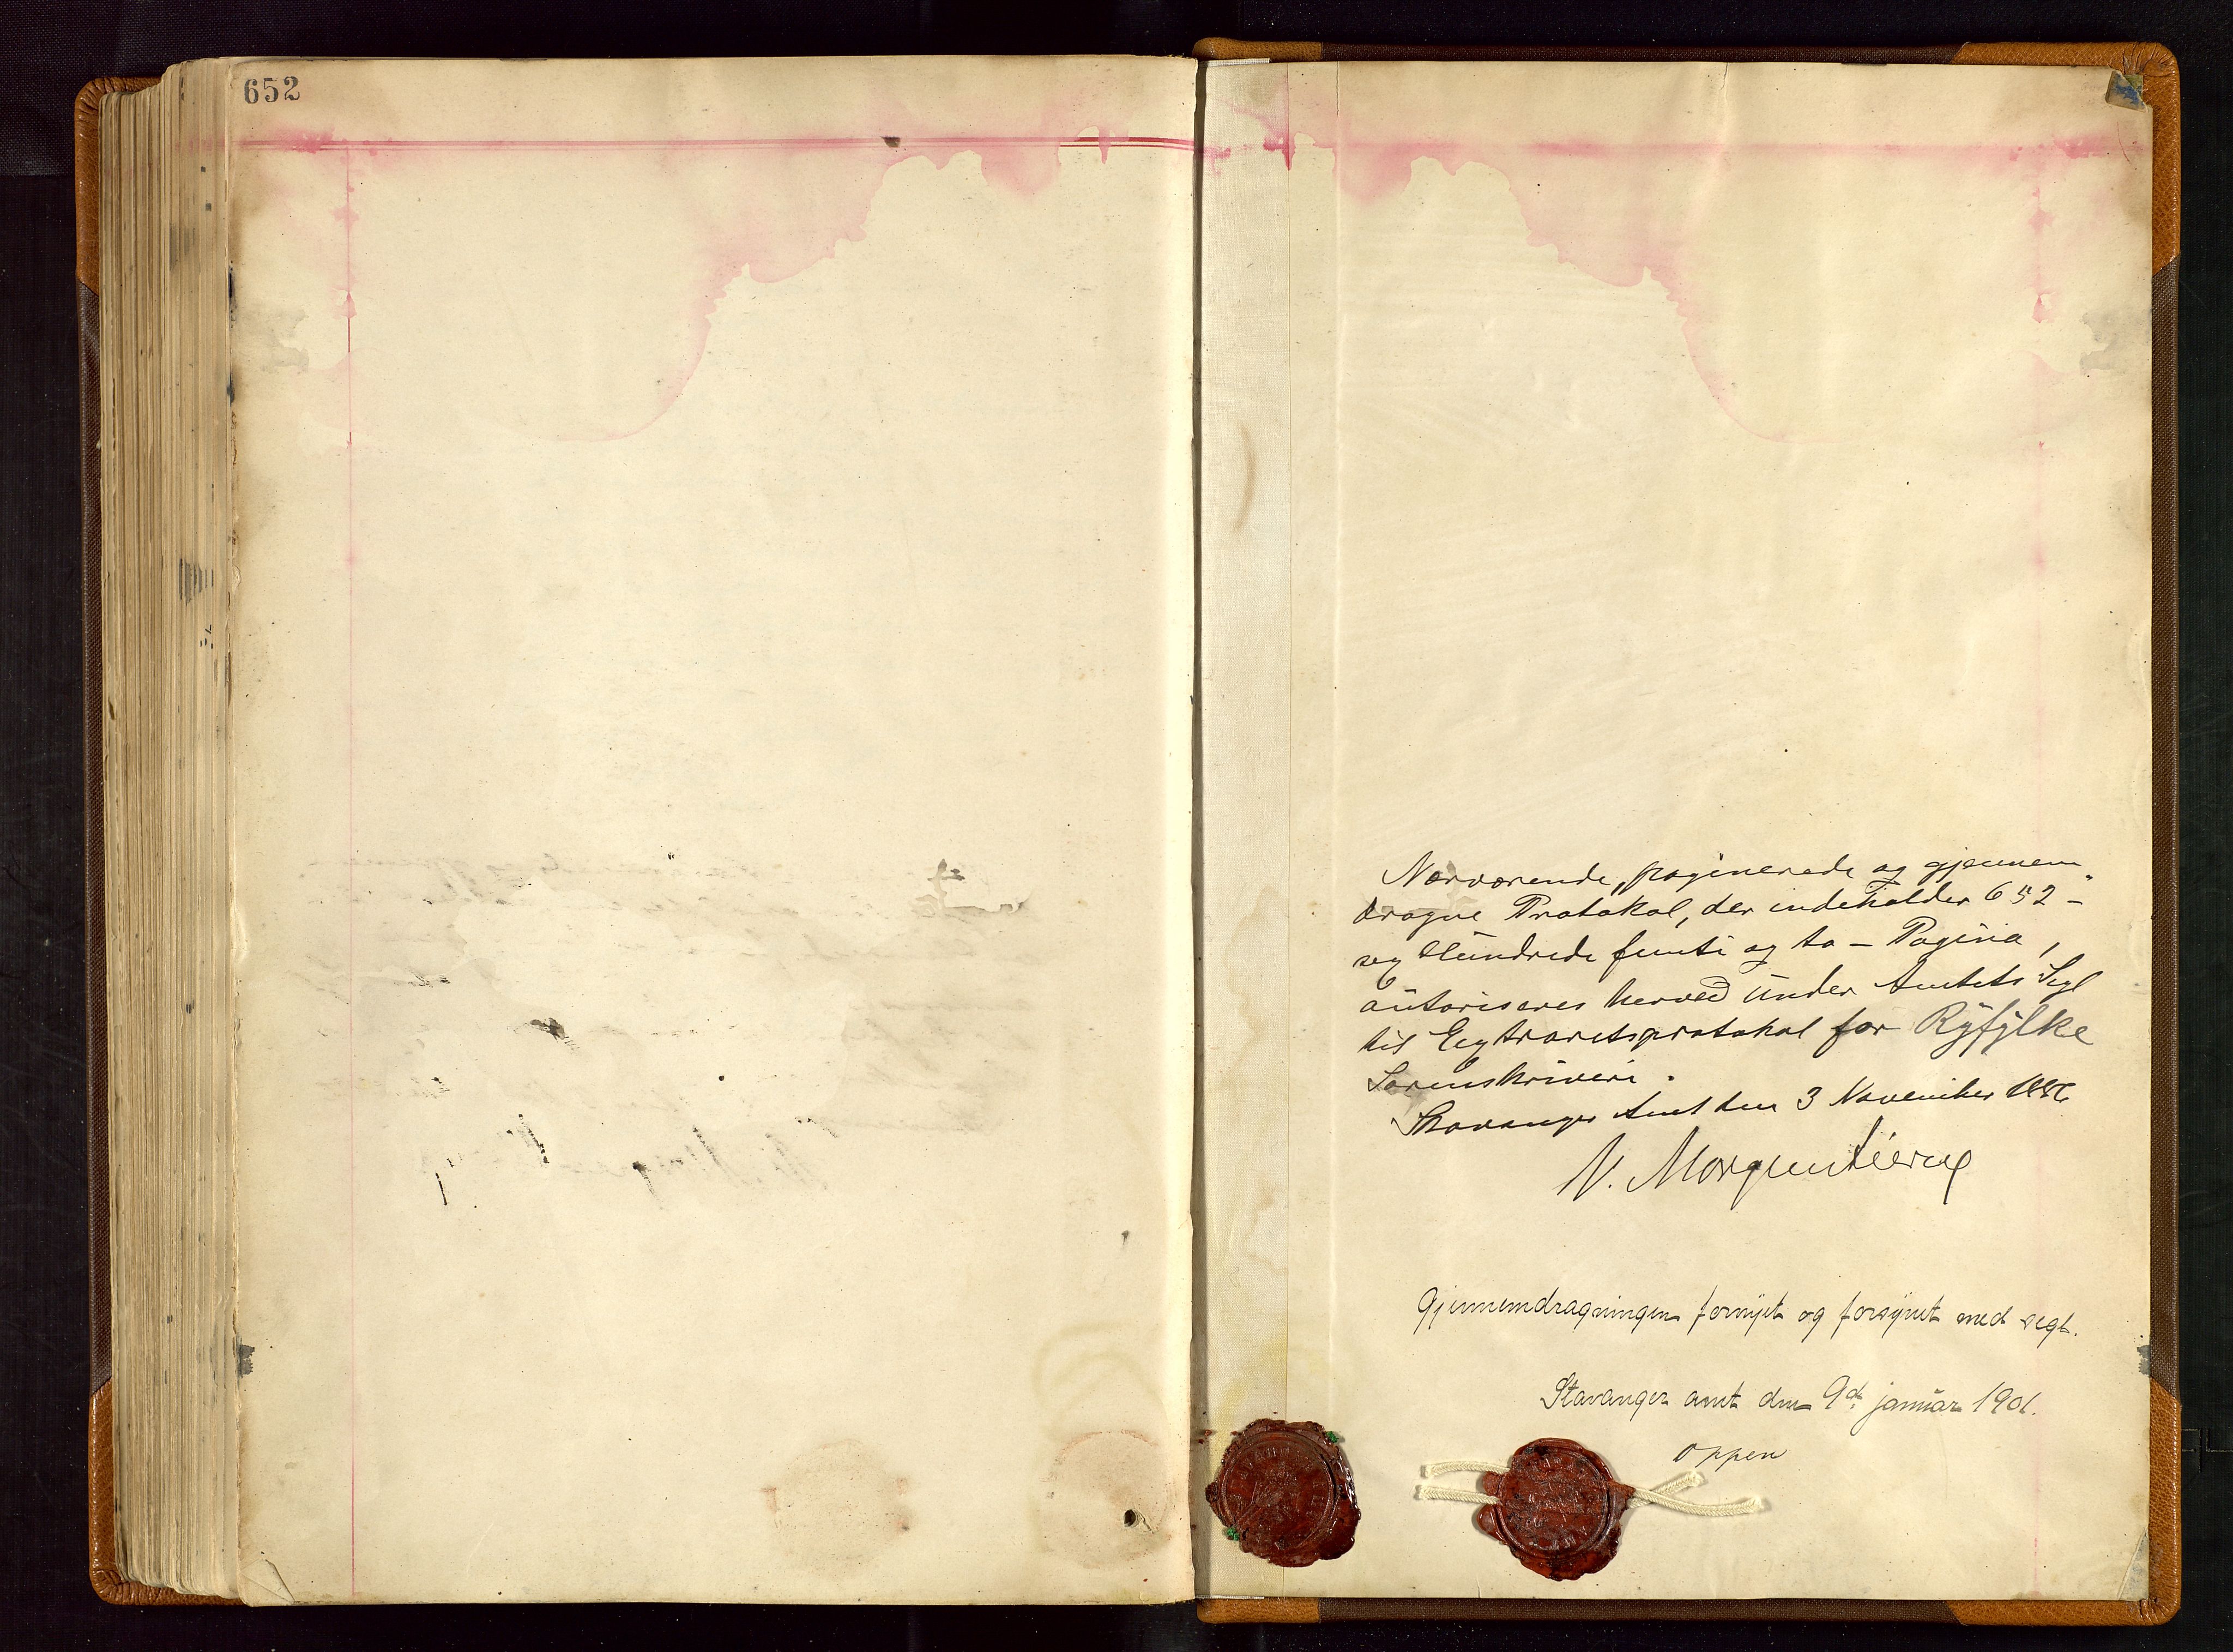 652
Nærværende, paginerede og gjennem-
dragne Protokol, der indeholder 652 -
sex Hundrede femti og to - Pagina,
autoriseres herved under Amtets Segl
til Extraretsprotokol for Ryfylke
Sorenskriveri.
Stavanger Amt den 3 November 1886
V. Morgenstierne
Gjennemdragningen fornyet og forsynet med segl.
Stavanger amt den 9de januar 1901.
Oppen